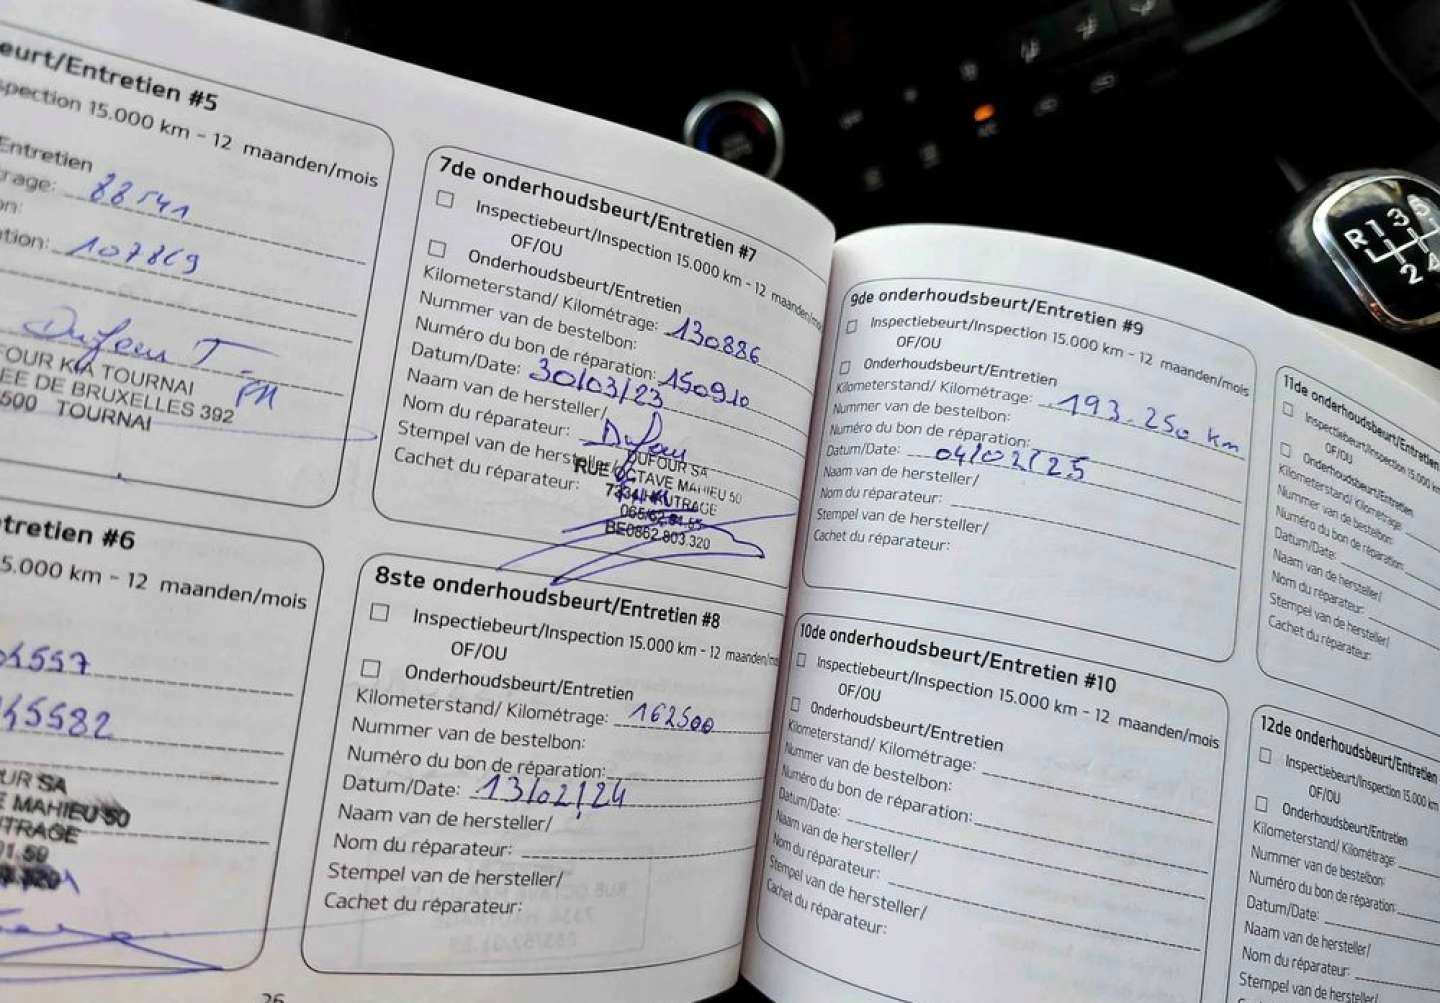 eurt/Entretien #5
spection 15.000 km - 12 maanden/mois
Entretien
rage: 88541
on:
tion: 107869
Dufour T
OUR KIA TOURNAI
EE DE BRUXELLES 392
500 TOURNAI
tretien #6
5.000 km - 12 maanden/mois
45582
UR SA
E MAHIEU 50
TRAGE
26
7de onderhoudsbeurt/Entretien #7
Inspectiebeurt/Inspection 15.000 km - 12 maanden/mo
OF/OU
Onderhoudsbeurt/Entretien
Kilometerstand/ Kilométrage: 130886
Nummer van de bestelbon:
Numéro du bon de réparation: 150910
Datum/Date: 30/03/23
Naam van de hersteller/
Nom du réparateur: Dufour
Stempel van de hersteller/ DUFOUR SA
RUE OCTAVE MAHIEU 50
Cachet du réparateur: 7334 HAUTRAGE
BE0862.803.320
8ste onderhoudsbeurt/Entretien #8
Inspectiebeurt/Inspection 15.000 km - 12 maanden/mo
OF/OU
Onderhoudsbeurt/Entretien
Kilometerstand/ Kilométrage: 162500
Nummer van de bestelbon:
Numéro du bon de réparation:
Datum/Date: 13/02/24
Naam van de hersteller/
Nom du réparateur:
Stempel van de hersteller/
Cachet du réparateur:
9de onderhoudsbeurt/Entretien #9
Inspectiebeurt/Inspection 15.000 km - 12 maanden/mois
OF/OU
Onderhoudsbeurt/Entretien
Kilometerstand/ Kilométrage: 193.250 km
Nummer van de bestelbon:
Numéro du bon de réparation:
Datum/Date: 04/02/25
Naam van de hersteller/
Nom du réparateur:
Stempel van de hersteller/
Cachet du réparateur:
10de onderhoudsbeurt/Entretien #10
Inspectiebeurt/Inspection 15.000 km - 12 maanden/mois
OF/OU
Onderhoudsbeurt/Entretien
Kilometerstand/ Kilométrage:
Nummer van de bestelbon:
Numéro du bon de réparation:
Datum/Date:
Naam van de hersteller/
Nom du réparateur:
Stempel van de hersteller/
Cachet du réparateur:
11de onderhoudsbeurt/Entretien
Inspectiebeurt/Inspection 15.000 k
OF/OU
Onderhoudsbeurt/Entretien
Kilometerstand/ Kilométrage:
Nummer van de bestelbon:
Numéro du bon de réparation:
Datum/Date:
Naam van de hersteller/
Nom du réparateur:
Stempel van de hersteller/
Cachet du réparateur:
12de onderhoudsbeurt/Entretien
Inspectiebeurt/Inspection 15.000 km
OF/OU
Onderhoudsbeurt/Entretien
Kilometerstand/ Kilométrage:
Nummer van de bestelbon:
Numéro du bon de réparation:
Datum/Date:
Naam van de hersteller/
Nom du réparateur:
Stempel van de hersteller/
R 1 3 5
2 4